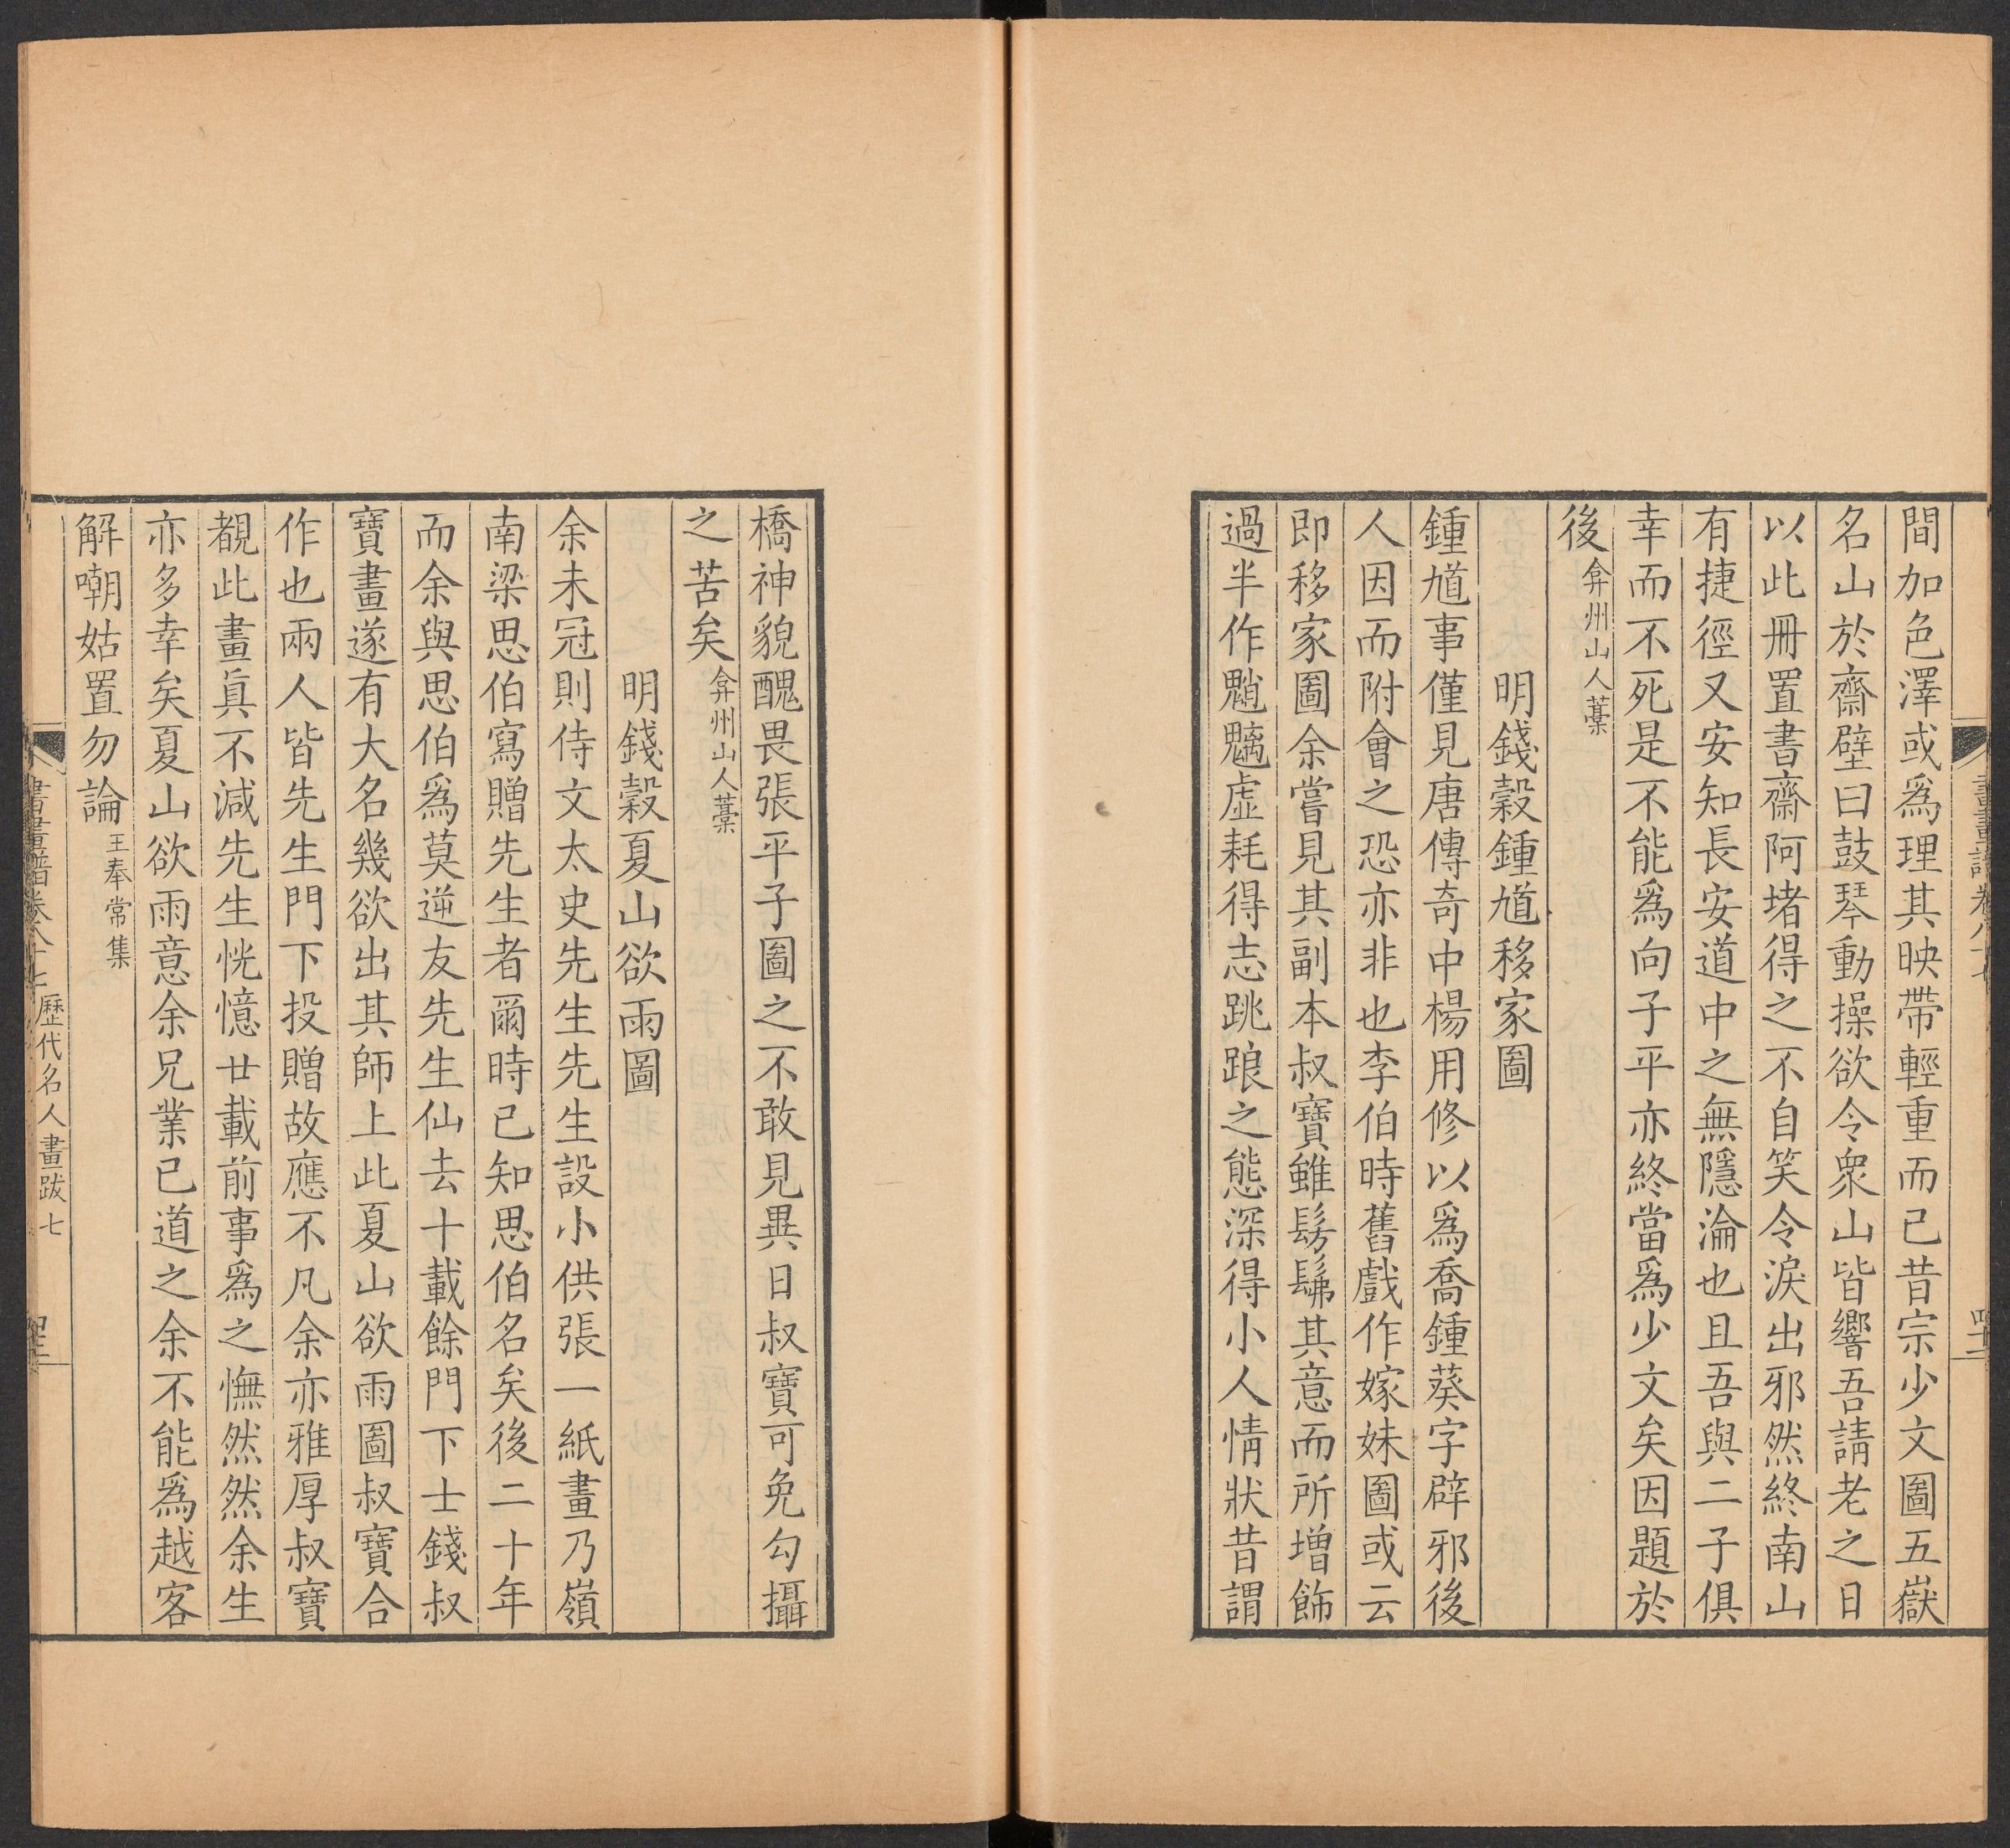 間加色澤或爲理其映帶輕重而已昔宗少文圖五嶽
名山於齋壁曰鼓琴動操欲令衆山皆響吾請老之日
以此冊置書齋阿堵得之不自笑令淚出邪然終南山
有捷徑又安知長安道中之無隱淪也且吾與二子俱
幸而不死是不能爲向子平亦終當爲少文矣因題於
後弇州山人藁
明錢穀鍾馗移家圖
鍾馗事僅見唐傳奇中楊用修以爲喬鍾葵字辟邪後
人因而附會之恐亦非也李伯時舊戲作嫁妹圖或云
即移家圖余嘗見其副本叔寶雖髣髴其意而所增飾
過半作魈魑虛耗得志跳踉之態深得小人情狀昔謂
橋神貌醜畏張平子圖之不敢見異日叔寶可免勾攝
之苦矣弇州山人藁
明錢穀夏山欲雨圖
余未冠則侍文太史先生先生設小供張一紙畫乃嶺
南梁思伯寫贈先生者爾時已知思伯名矣後二十年
而余與思伯爲莫逆友先生仙去十載餘門下士錢叔
寶畫遂有大名幾欲出其師上此夏山欲雨圖叔寶合
作也兩人皆先生門下投贈故應不凡余亦雅厚叔寶
覩此畫眞不減先生恍憶廿載前事爲之憮然然余生
亦多幸矣夏山欲雨意余兄業已道之余不能爲越客
解嘲姑置勿論王奉常集
書畫譜卷八十七 歷代名人畫跋七